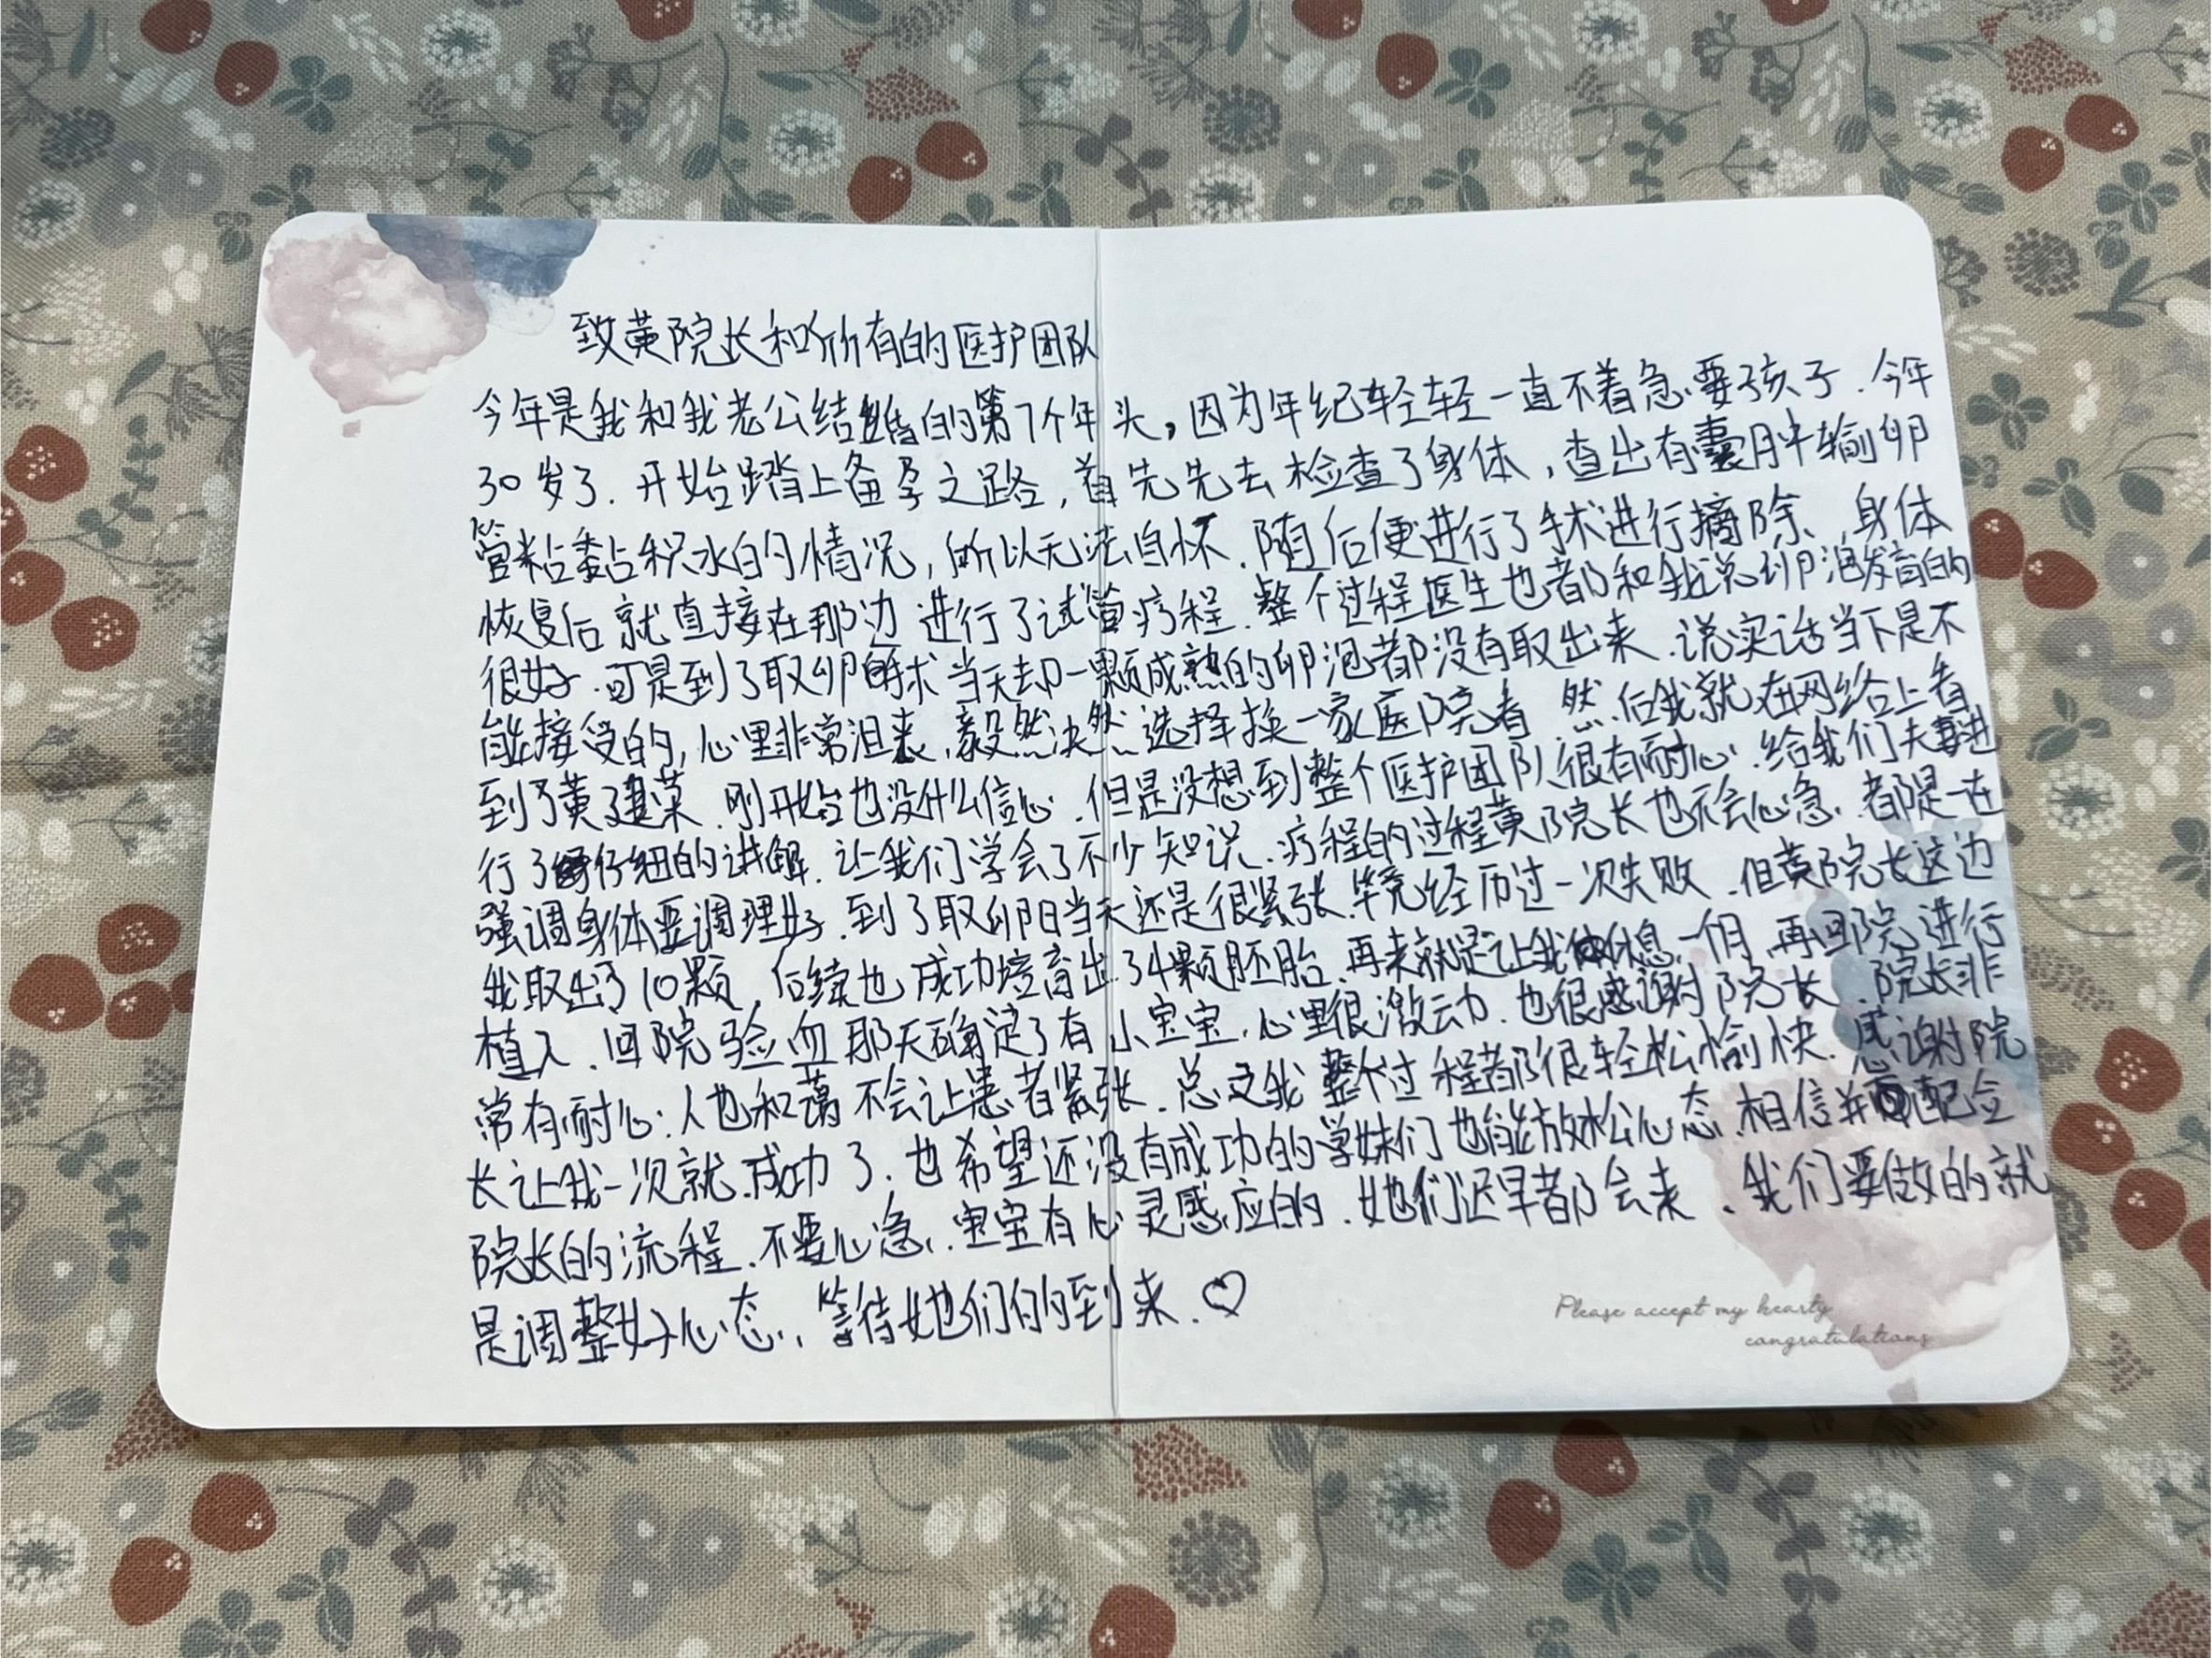 致黄院长和所有的医护团队
今年是我和我老公结婚的第7个年头，因为年纪轻轻一直不着急要孩子.今年
30岁了.开始踏上备孕之路，首先先去检查了身体，查出有囊肿输卵
管粘黏积水的情况，所以无法自怀.随后便进行了手术进行摘除、身体
恢复后就直接在那边进行了试管疗程.整个过程医生也都和我说卵泡发育的
很好.可是到了取卵手术当天却一颗成熟的卵泡都没有取出来.说实话当下是不
能接受的,心里非常沮丧,毅然决然选择换一家医院看 然后我就在网络上看
到了黄建荣.刚开始也没什么信心.但是没想到整个医护团队很有耐心.给我们夫妻进
行了仔细的讲解.让我们学会了不少知识.疗程的过程黄院长也不会心急.都是一在
强调身体要调理好.到了取卵日当天还是很紧张.毕竟经历过一次失败.但黄院长这边
我取出了10颗,后续也成功培育出了4颗胚胎.再来就是让我休息一个月.再回院进行
植入.回院验血那天确定了有小宝宝.心里很激动.也很感谢院长.院长非
常有耐心:人也和蔼不会让患者紧张.总之我整个过程都很轻松愉快.感谢院
长让我一次就成功了.也希望还没有成功的学妹们也能放松心态.相信并配合
院长的流程.不要心急.宝宝有心灵感应的.她们迟早都会来.我们要做的就
是调整好心态.等待她们的到来.♡
Please accept my hearty
congratulations